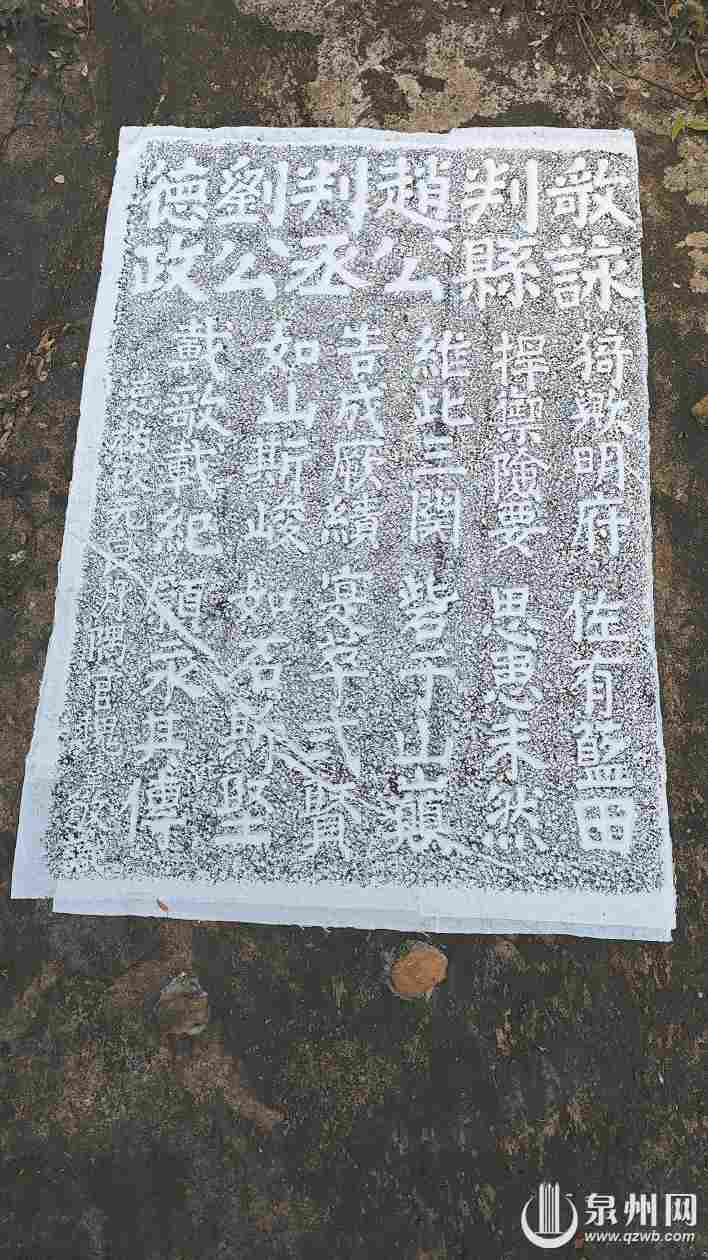 歌詠 猗歟明府 佐有藍田
判縣 捍禦險要 思患未然
趙公 維此三關 訾于山巔
判丞 告成厥績 寔萃弍賢
劉公 如山斯峻 如石斯堅
德政 載歌載紀 願永其傳
元旦
泉州网
www.qzwb.com